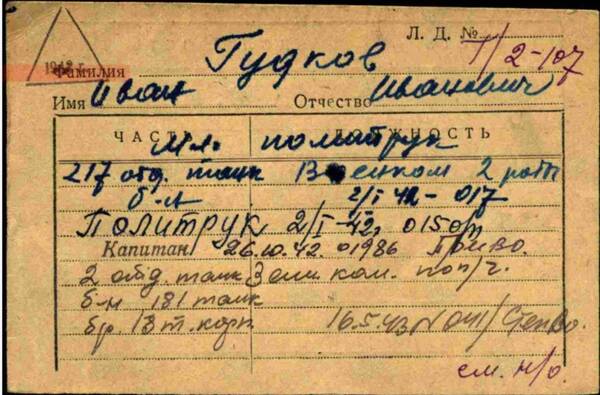 Л. Д. № 1/2-107
1942 г.
Фамилия Гудков
Имя Иван Отчество Иванович
ЧАСТЬ ДОЛЖНОСТЬ
Мл. политрук
217 отд. танк Военком 2 роты
б-н 2/I 42 - 017
Политрук 2/I-42г. 015
Капитан 26.10.42. 01986 Приво.
2 отд. танк Зам. ком. поп/ч.
б-н 181 танк
бр 18 т. корп 16.5.43 N 041/СтепВо.
см. н/о.